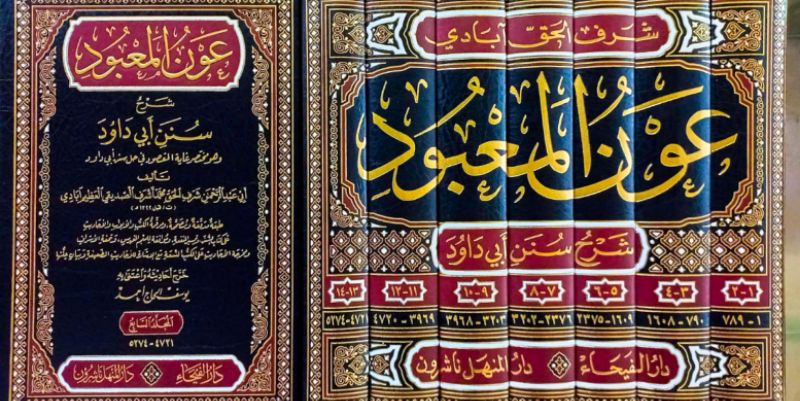 عَوْنُ المَعْبُود
شَرْحُ
سُنَنِ أَبي دَاوُدَ
وهو مختصر غاية المقصود في حل سنن أبي داود
تأليف
أبي عبد الرحمن شرف الحق محمد أشرف الصديقي العظيم آبادي
خرّج أحاديثه واعتنى به
يوسف الحاج أحمد
المجلد السابع
٤٧٢١-٥٢٧٤
دار الفيحاء دار المنهل ناشرون
شرف الحق آبادي
عَوْنُ المَعْبُودِ
شَرْحُ سُنَنِ أَبي دَاوُدَ
١-٢ ٣-٤ ٥-٦ ٧-٨ ٩-١٠ ١١-١٢ ١٣-١٤
١-٧٨٩ ٧٩٠-١٦٠٨ ١٦٠٩-٢٣٧٥ ٢٣٧٦-٣٢٠٢ ٣٢٠٣-٣٩٦٨ ٣٩٦٩-٤٧٢٠ ٤٧٢١-٥٢٧٤
دار الفيحاء دار المنهل ناشرون